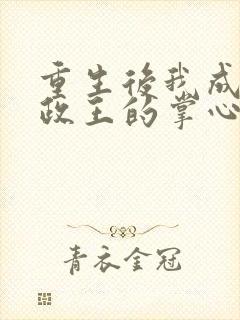 重生後我成
政王的掌心
青衣金冠